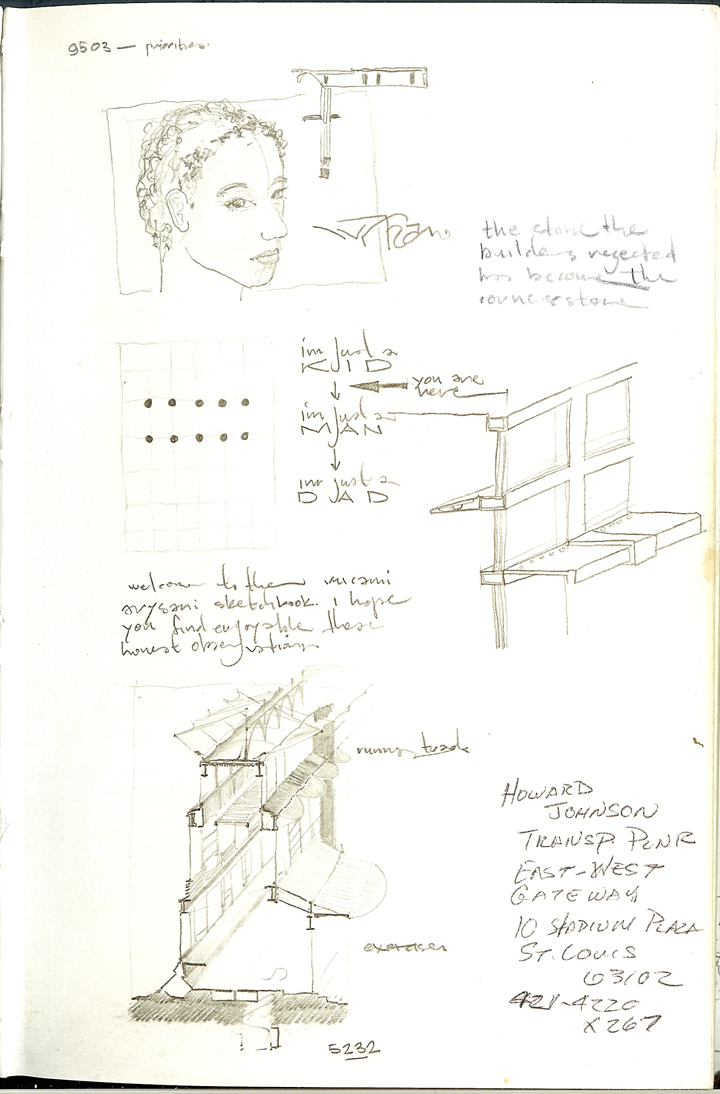 9503 — priorities.
the stone the
builders rejected
has become the
cornerstone
im Just a
KID
you are
here
im Just a
MAN
im Just a
DAD
welcome to the
sketchbook. i hope
you find enjoyable these
honest observations
running track
exercises
HOWARD
JOHNSON
TRANSP. PLNR
EAST-WEST
GATEWAY
10 STADIUM PLAZA
ST. LOUIS
63102
421-4220
X267
5232